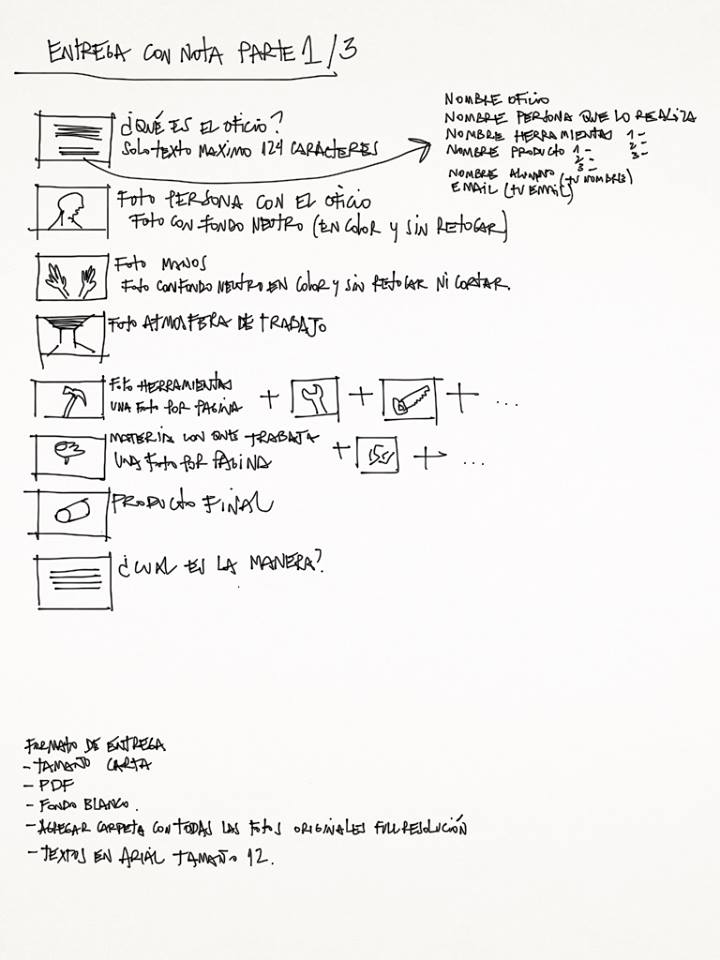 ENTREGA CON NOTA PARTE 1/3
¿QUÉ ES EL OFICIO?
SOLO TEXTO MAXIMO 124 CARACTERES
NOMBRE OFICIO
NOMBRE PERSONA QUE LO REALIZA
NOMBRE HERRAMIENTAS 1-
2-
3-
NOMBRE PRODUCTO 1-
2-
3-
NOMBRE ALUMNO (TU NOMBRE)
EMAIL (TU EMAIL)
FOTO PERSONA CON EL OFICIO
FOTO CON FONDO NEUTRO (EN COLOR Y SIN RETOCAR)
FOTO MANOS
FOTO CON FONDO NEUTRO EN COLOR Y SIN RETOCAR NI CORTAR.
FOTO ATMOSFERA DE TRABAJO
FOTO HERRAMIENTAS
UNA FOTO POR PAGINA + + + ...
MATERIA CON QUE TRABAJA
UNA FOTO POR PÁGINA + + ...
PRODUCTO FINAL
¿CUAL ES LA MANERA?
FORMATO DE ENTREGA
- TAMAÑO CARTA
- PDF
- FONDO BLANCO.
- AGREGAR CARPETA CON TODAS LAS FOTOS ORIGINALES FULL RESOLUCIÓN
- TEXTOS EN ARIAL TAMAÑO 12.